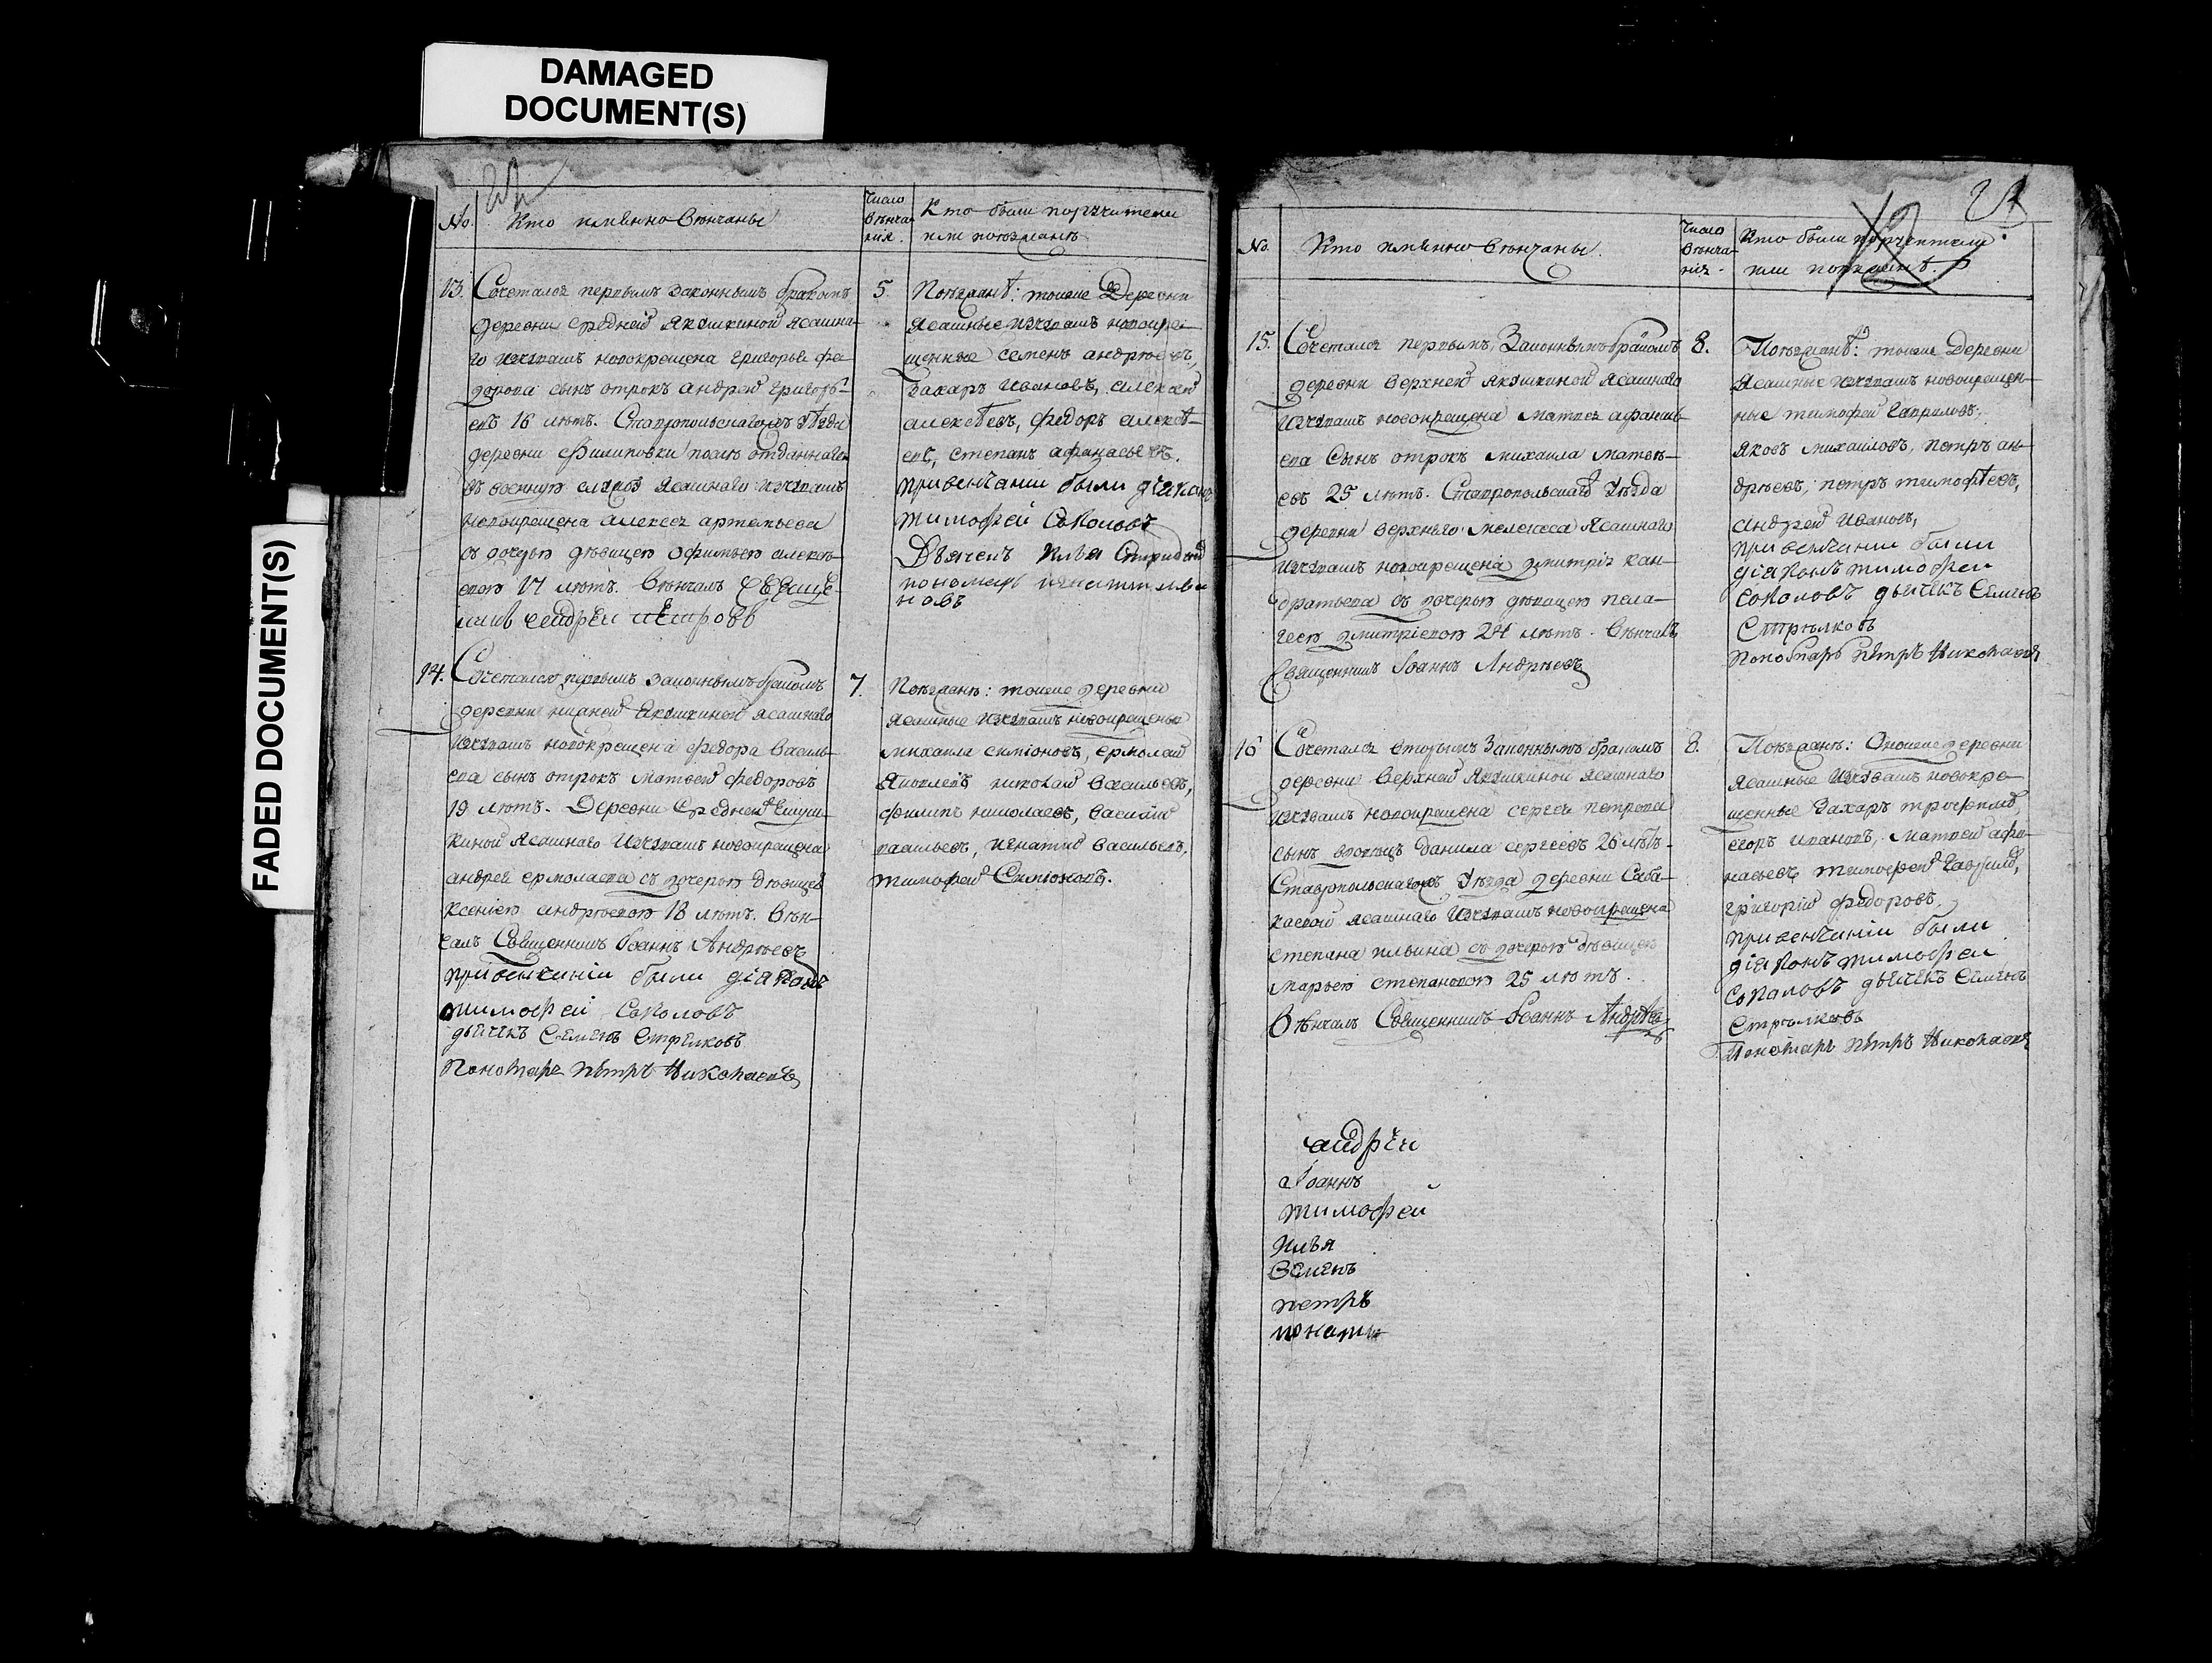 DAMAGED
DOCUMENT(S)
FADED DOCUMENT(S)
No.
Кто имянно венчаны
Число
венча-
ния.
Кто были поручители
или поезжанѣ
13.
Сочетался первымъ законнымъ бракомъ
деревни средней Якушкиной ясашна-
го изчувашъ новокрещена григорья фе-
дорова сынъ отрокъ андрей григорь-
евъ 16 лѣтъ. Ставропольскагожъ уѣзда
деревни Филиповки послѣ отданнаго
въ военную службу ясашнаго изчувашъ
новокрещена алексея артемьева
съ дочерью девицею офимьею алексѣ-
евою 17 лѣтъ. Венчалъ Священ-
никъ андрей петровъ
5
Поѣзжанѣ: тоеже Деревни
Ясашные изчувашъ новокре-
щенные семенъ андреевъ,
Захаръ Ивановъ, алексей
алексѣевъ, федоръ алексѣ-
евъ, степанъ афанасьевъ.
привенчании были диаконъ
тимофей Соколовъ
Дьячекъ илья
пономарь
новъ
14.
Сочетался первымъ законнымъ бракомъ
деревни нижней Якушкиной ясашнаго
изчувашъ новокрещена федора Василь-
ева сынъ отрокъ матвей федоровъ
19 лѣтъ. Деревни Средней Якуш-
киной Ясашнаго Изчувашъ новокрещена
андрея ермолаева съ дочерью девицею
Ксениею андреевою 18 лѣтъ. Вѣн-
чалъ Священникъ Іоаннъ Андреевъ
привенчании были диаконъ
тимофей Соколовъ
дьячекъ Семенъ Стрелковъ
Пономарь петръ Николаевъ
7.
Поезжанѣ: тоеже деревни
ясашные изчувашъ новокрещеные
михаила симионовъ, ермолай
Яковлевъ николай Васильевъ,
филипъ николаевъ, Василий
васильевъ, игнатий Васильевъ,
тимофей Симионовъ.
No.
Кто имянно венчаны.
Число
венча-
ния.
Кто были поручители
или поезжанѣ.
15.
Сочетался первымъ Законнымъ бракомъ
деревни верхней якушкиной Ясашнаго
Изчувашъ новокрещена матвея афанась-
ева Сынъ отрокъ михаила матве-
евъ 25 лѣтъ. Ставропольскагожъ уѣзда
деревни верхняго мелекеса Ясашнаго
изчувашъ новокрещена дмитрия кан-
дратьева съ дочерью девицею пела-
геею дмитриевою 24 лѣтъ. Венчалъ
Священникъ Іоаннъ Андреевъ
8.
Поѣзжанѣ: тоеже Деревни
Ясашные изчувашъ новокрещен-
ные тимофей Гавриловъ,
яковъ михаиловъ, петръ ан-
дреевъ, петръ тимофѣевъ,
андрей Ивановъ,
при венчании были
диаконъ тимофеи
Соколовъ дьячекъ Семенъ
Стрѣлковъ
Пономарь петръ Николаевъ
16
Сочетался вторымъ Законнымъ бракомъ
деревни Верхней Якушкиной ясашнаго
изчувашъ новокрещена сергея петрова
Сынъ вдовецъ Данила сергеевъ 26 лѣтъ.
Ставропольскагожъ уѣзда деревни Саба-
каевой ясашнаго Изчувашъ новокрещена
степана ильина съ дочерью девицею
марьею степановою 25 лѣтъ.
Венчалъ Священникъ Іоаннъ Андреевъ
8.
Поезжанѣ: Оноеже деревни
ясашные Изчувашъ новокре-
щенные Захаръ трофимовъ,
егоръ ивановъ, матвей афо-
насьевъ тимофей Гавриловъ,
григорий федоровъ.
привенчании были
диаконъ тимофеи
Соколовъ дьячекъ Семенъ
Стрѣлковъ
Пономарь петръ Николаевъ
андрей
Іоаннъ
тимофей
Илья
Семенъ
петръ